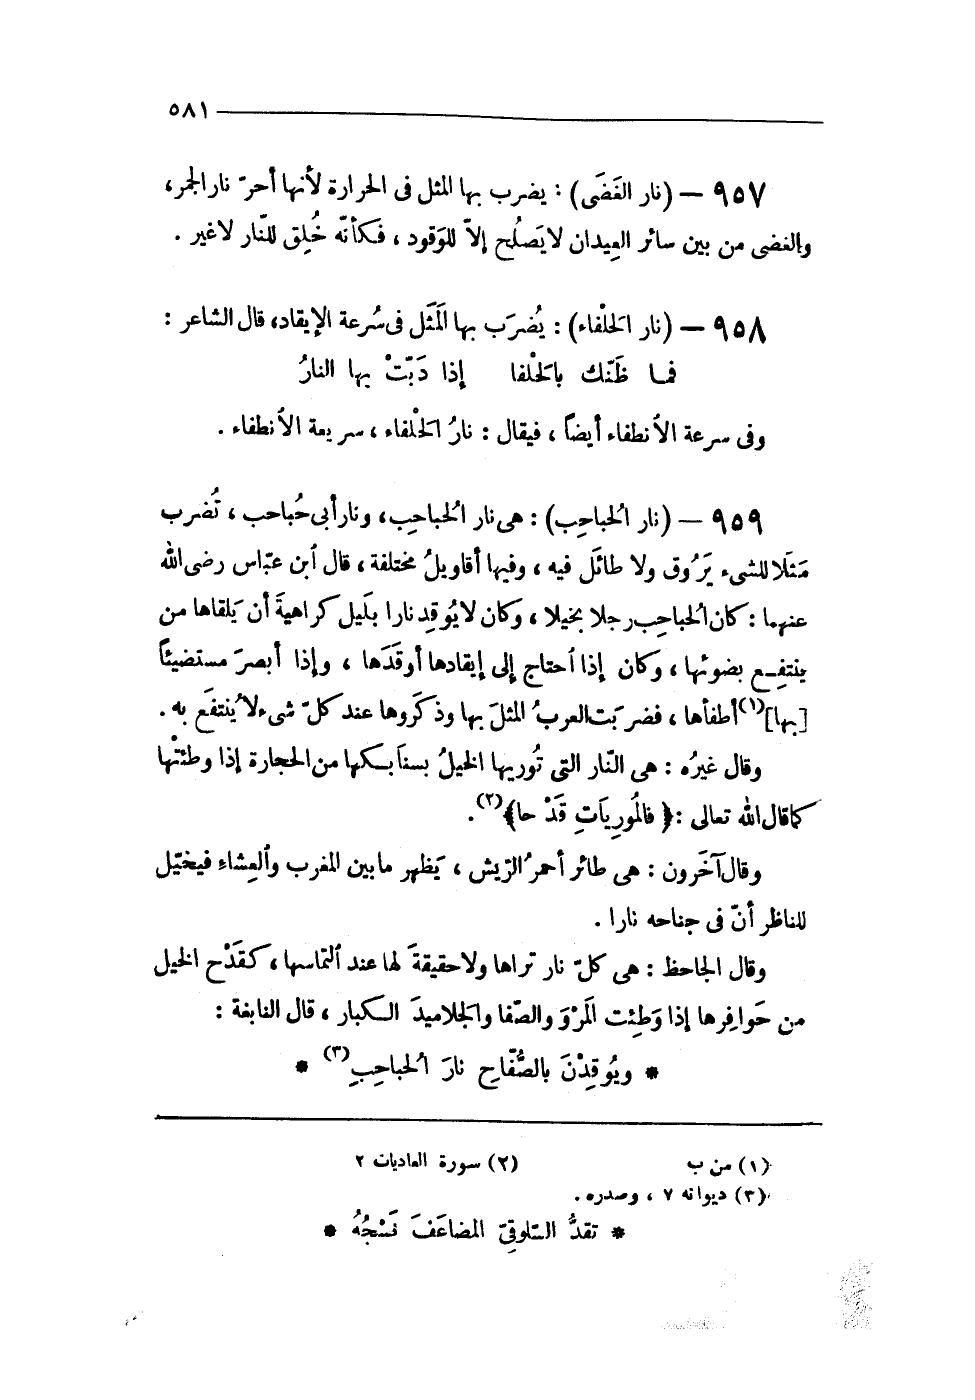 ٥٨١
٩٥٧ — (نار الغَضَى) : يضرب بها المثل فى الحرارة لأنها أحرّ نار الجمر،
والغضى من بين سائر العِيدان لا يَصلُح إلاّ للوَقود ، فكأنّه خُلِق للنّار لا غير .
٩٥٨ — (نار الحَلْفاء) : يُضرَب بها المَثَل فى سُرعة الإيقاد، قال الشاعر :
فمـا ظَنّك بالحَلْفا إذا دَبّتْ بها النارُ
وفى سرعة الأنطفاء أيضاً ، فيقال : نارُ الحَلْفاء ، سريعة الأنطفاء .
٩٥٩ — (نار الُحباحِب) : هى نار الُحباحِب، ونار أبى حُباحب ، تُضرب
مَثَلا للشىء يَرُوق ولا طائَل فيه ، وفيها أقاويلُ مختلفة ، قال ٱبن عبّاس رضى الله
عنهما : كان الُحباحِب رجلا بخيلا ، وكان لا يُوقِد نارا بلَيل كراهيةَ أن يَلقاها من
ينتفِـع بضوئها ، وكان إذا ٱحتاج إلى إيقادها أوقَدَها ، وإذا أبصرَ مستضيئاً
[بها](١) أطفأها ، فضربَت العربُ المثلَ بها وذكَروها عند كلّ شىء لا يُنتفَع به .
وقال غيرُه : هى النّار التى تُوريها الخيلُ بسنابكها من الحجارة إذا وطئتْها
كما قال الله تعالى : ﴿ فالمُورِيَاتِ قَدْحا﴾(٢) .
وقال آخَرون : هى طائر أحمرُ الرّيش ، يَظهر ما بين المغرب والعِشاء فيخيّل
للناظر أنّ فى جناحه نارا .
وقال الجاحظ : هى كلّ نار تراها ولا حقيقةَ لها عند ٱلتماسها ، كقَدْح الخيل
من حَوافِرها إذا وَطِئت المَرْوَ والصّفا والجلاميدَ الـكبار ، قال النابغة :
* ويُوقِدْنَ بالصُّفّاحِ نارَ الُحباحِبِ(٣) *
(١) من ب (٢) سورة العاديات ٢
(٣) ديوانه ٧ ، وصدره .
* تقدُّ السّلوقِىّ المضاعَفَ نَسْجُهُ *